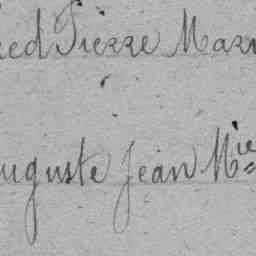 red Pierre Mar
uguste Jean Mie